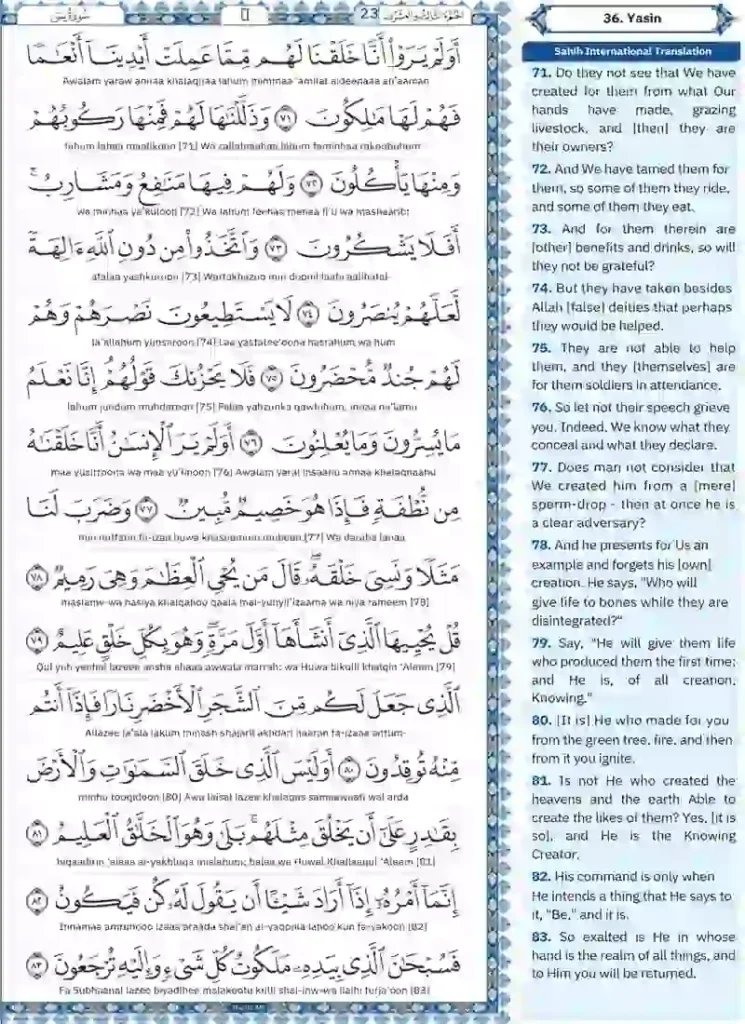 سورة يس
23
36. Yasin
أَوَلَمْ يَرَوْا۟ أَنَّا خَلَقْنَا لَهُم مِّمَّا عَمِلَتْ أَيْدِينَآ أَنْعَـٰمًا
Awalam yaraw annaa khalaqnaa lahum mimmaa 'amilat aideenaaa an'aaman
فَهُمْ لَهَا مَـٰلِكُونَ ٧١ وَذَلَّلْنَـٰهَا لَهُمْ فَمِنْهَا رَكُوبُهُمْ
fahum lahaa maalikoon [71] Wa zallalnaahaa lahum faminhaa rakoobuhum
وَمِنْهَا يَأْكُلُونَ ٧٢ وَلَهُمْ فِيهَا مَنَـٰفِعُ وَمَشَارِبُ ۖ
wa minhaa ya'kuloon [72] Wa lahum feehaa
أَفَلَا يَشْكُرُونَ ٧٣ وَٱتَّخَذُوا۟ مِن دُونِ ٱللَّهِ ءَالِهَةً
afalaa yashkuroon [73] Wattakhazoo min doonil laahi aalihatal-
لَّعَلَّهُمْ يُنصَرُونَ ٧٤ لَا يَسْتَطِيعُونَ نَصْرَهُمْ وَهُمْ
la'allahum yunsaroon [74] Laa yastatee'oona nasrahum wa hum
لَهُمْ جُندٌ مُّحْضَرُونَ ٧٥ فَلَا يَحْزُنكَ قَوْلُهُمْ ۘ إِنَّا نَعْلَمُ
lahum jundum muhdaroon [75] Falaa yahzunka qawluhum; innaa na'lamu
مَا يُسِرُّونَ وَمَا يُعْلِنُونَ ٧٦ أَوَلَمْ يَرَ ٱلْإِنسَـٰنُ أَنَّا خَلَقْنَـٰهُ
maa yusirroona wa maa yu'linoon [76] Awalam yaral insaanu annaa khalaqnaahu
مِن نُّطْفَةٍ فَإِذَا هُوَ خَصِيمٌ مُّبِينٌ ٧٧ وَضَرَبَ لَنَا
min nutfatin fa-izaa huwa khaseemum mubeen [77] Wa daraba lanaa
مَثَلًا وَنَسِىَ خَلْقَهُۥ ۖ قَالَ مَن يُحْىِ ٱلْعِظَـٰمَ وَهِىَ رَمِيمٌ ٧٨
masalanw-wa nasiya khalqahoo qaala mai-yuhyil'izaama wa hiya rameem [78]
قُلْ يُحْيِيهَا ٱلَّذِىٓ أَنشَأَهَآ أَوَّلَ مَرَّةٍ ۖ وَهُوَ بِكُلِّ خَلْقٍ عَلِيمٌ ٧٩
Qul lazeee ansha ahaaa awwala marrah; wa Huwa bikulli khalqin 'Aleem [79]
ٱلَّذِى جَعَلَ لَكُم مِّنَ ٱلشَّجَرِ ٱلْأَخْضَرِ نَارًا فَإِذَآ أَنتُم
Allazee ja'ala lakum minash shajaril akhdari naaran fa-izaaa antum-
مِّنْهُ تُوقِدُونَ ٨٠ أَوَلَيْسَ ٱلَّذِى خَلَقَ ٱلسَّمَـٰوَٰتِ وَٱلْأَرْضَ
minhu tooqidoon [80] Awa laisal lazee khalaqas samaawaati wal arda
بِقَـٰدِرٍ عَلَىٰٓ أَن يَخْلُقَ مِثْلَهُم ۚ بَلَىٰ وَهُوَ ٱلْخَلَّـٰقُ ٱلْعَلِيمُ ٨١
biqaadirin 'alaaa ai-yakhluqa mislahum; balaa wa Huwal Khallaaqul 'Aleem [81]
إِنَّمَآ أَمْرُهُۥٓ إِذَآ أَرَادَ شَيْـًٔا أَن يَقُولَ لَهُۥ كُن فَيَكُونُ ٨٢
Innamaa amruhooo izaaa araada shai'an ai-yaqoola lahoo kun fa-yakoon [82]
فَسُبْحَـٰنَ ٱلَّذِى بِيَدِهِۦ مَلَكُوتُ كُلِّ شَىْءٍ وَإِلَيْهِ تُرْجَعُونَ ٨٣
Fa Subhaanal lazee biyadihee malakootu kulli shai-inw-wa ilaihi turja'oon [83]
Sahih International Translation
71. Do they not see that We have
created for them from what Our
hands have made, grazing
livestock, and [then] they are
their owners?
72. And We have tamed them for
them, so some of them they ride,
and some of them they eat.
73. And for them therein are
[other] benefits and drinks, so will
they not be grateful?
74. But they have taken besides
Allah [false] deities that perhaps
they would be helped.
75. They are not able to help
them, and they [themselves] are
for them soldiers in attendance.
76. So let not their speech grieve
you. Indeed, We know what they
conceal and what they declare.
77. Does man not consider that
We created him from a [mere]
sperm-drop - then at once he is
a clear adversary?
78. And he presents for Us an
example and forgets his [own]
creation. He says, "Who will
give life to bones while they are
disintegrated?"
79. Say, "He will give them life
who produced them the first time;
and He is, of all creation,
Knowing."
80. [It is] He who made for you
from the green tree, fire, and then
from it you ignite.
81. Is not He who created the
heavens and the earth Able to
create the likes of them? Yes, [it is
so], and He is the Knowing
Creator.
82. His command is only when
He intends a thing that He says to
it, "Be," and it is.
83. So exalted is He in whose
hand is the realm of all things, and
to Him you will be returned.